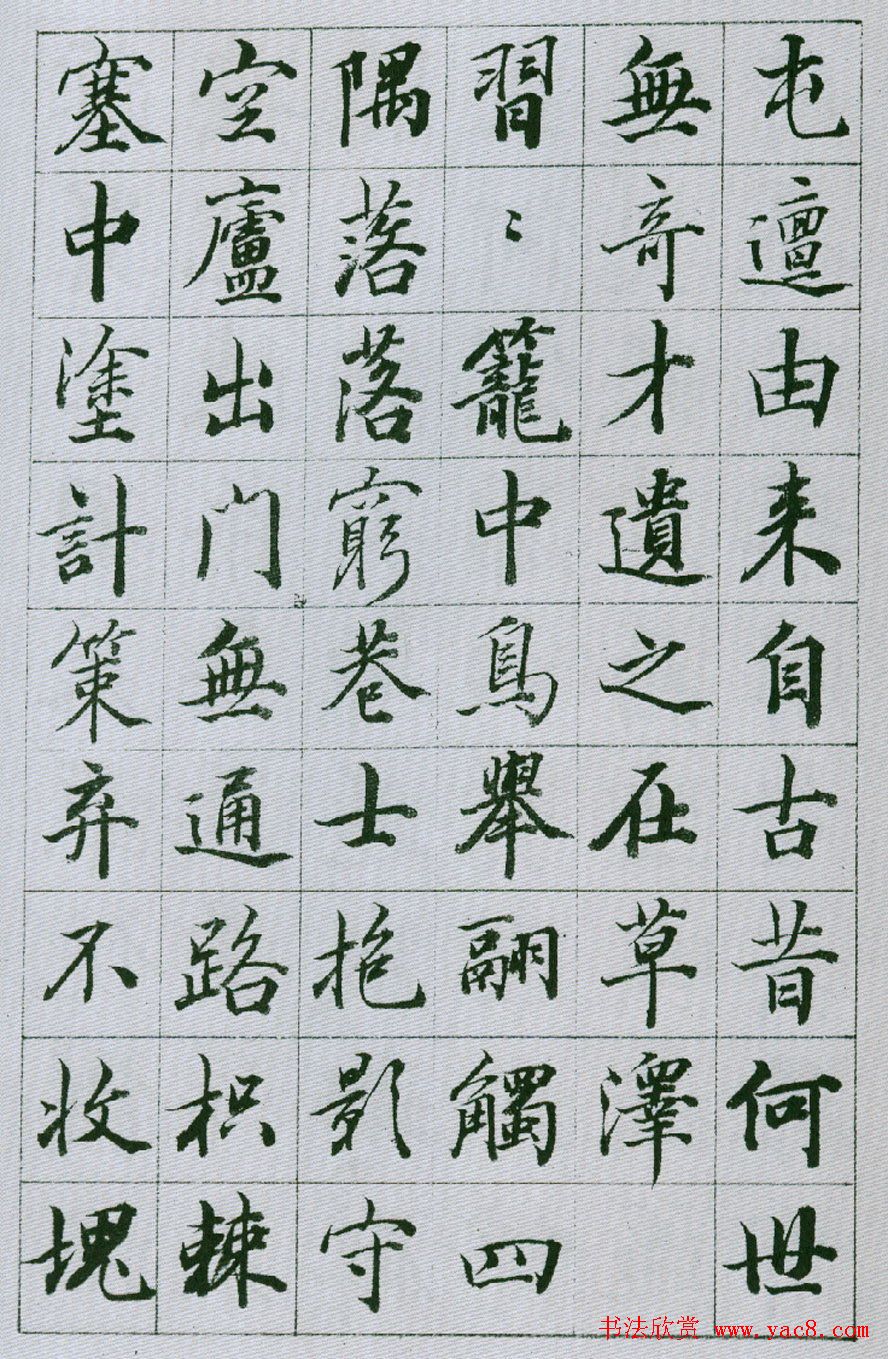 屯邅由来自古昔何世
無奇才遺之在草澤
習〻籠中鳥舉翮觸四
隅落落窮巷士抱影守
空廬出门無通路枳棘
塞中塗計策弃不收塊
书法欣赏 www.yac8.com